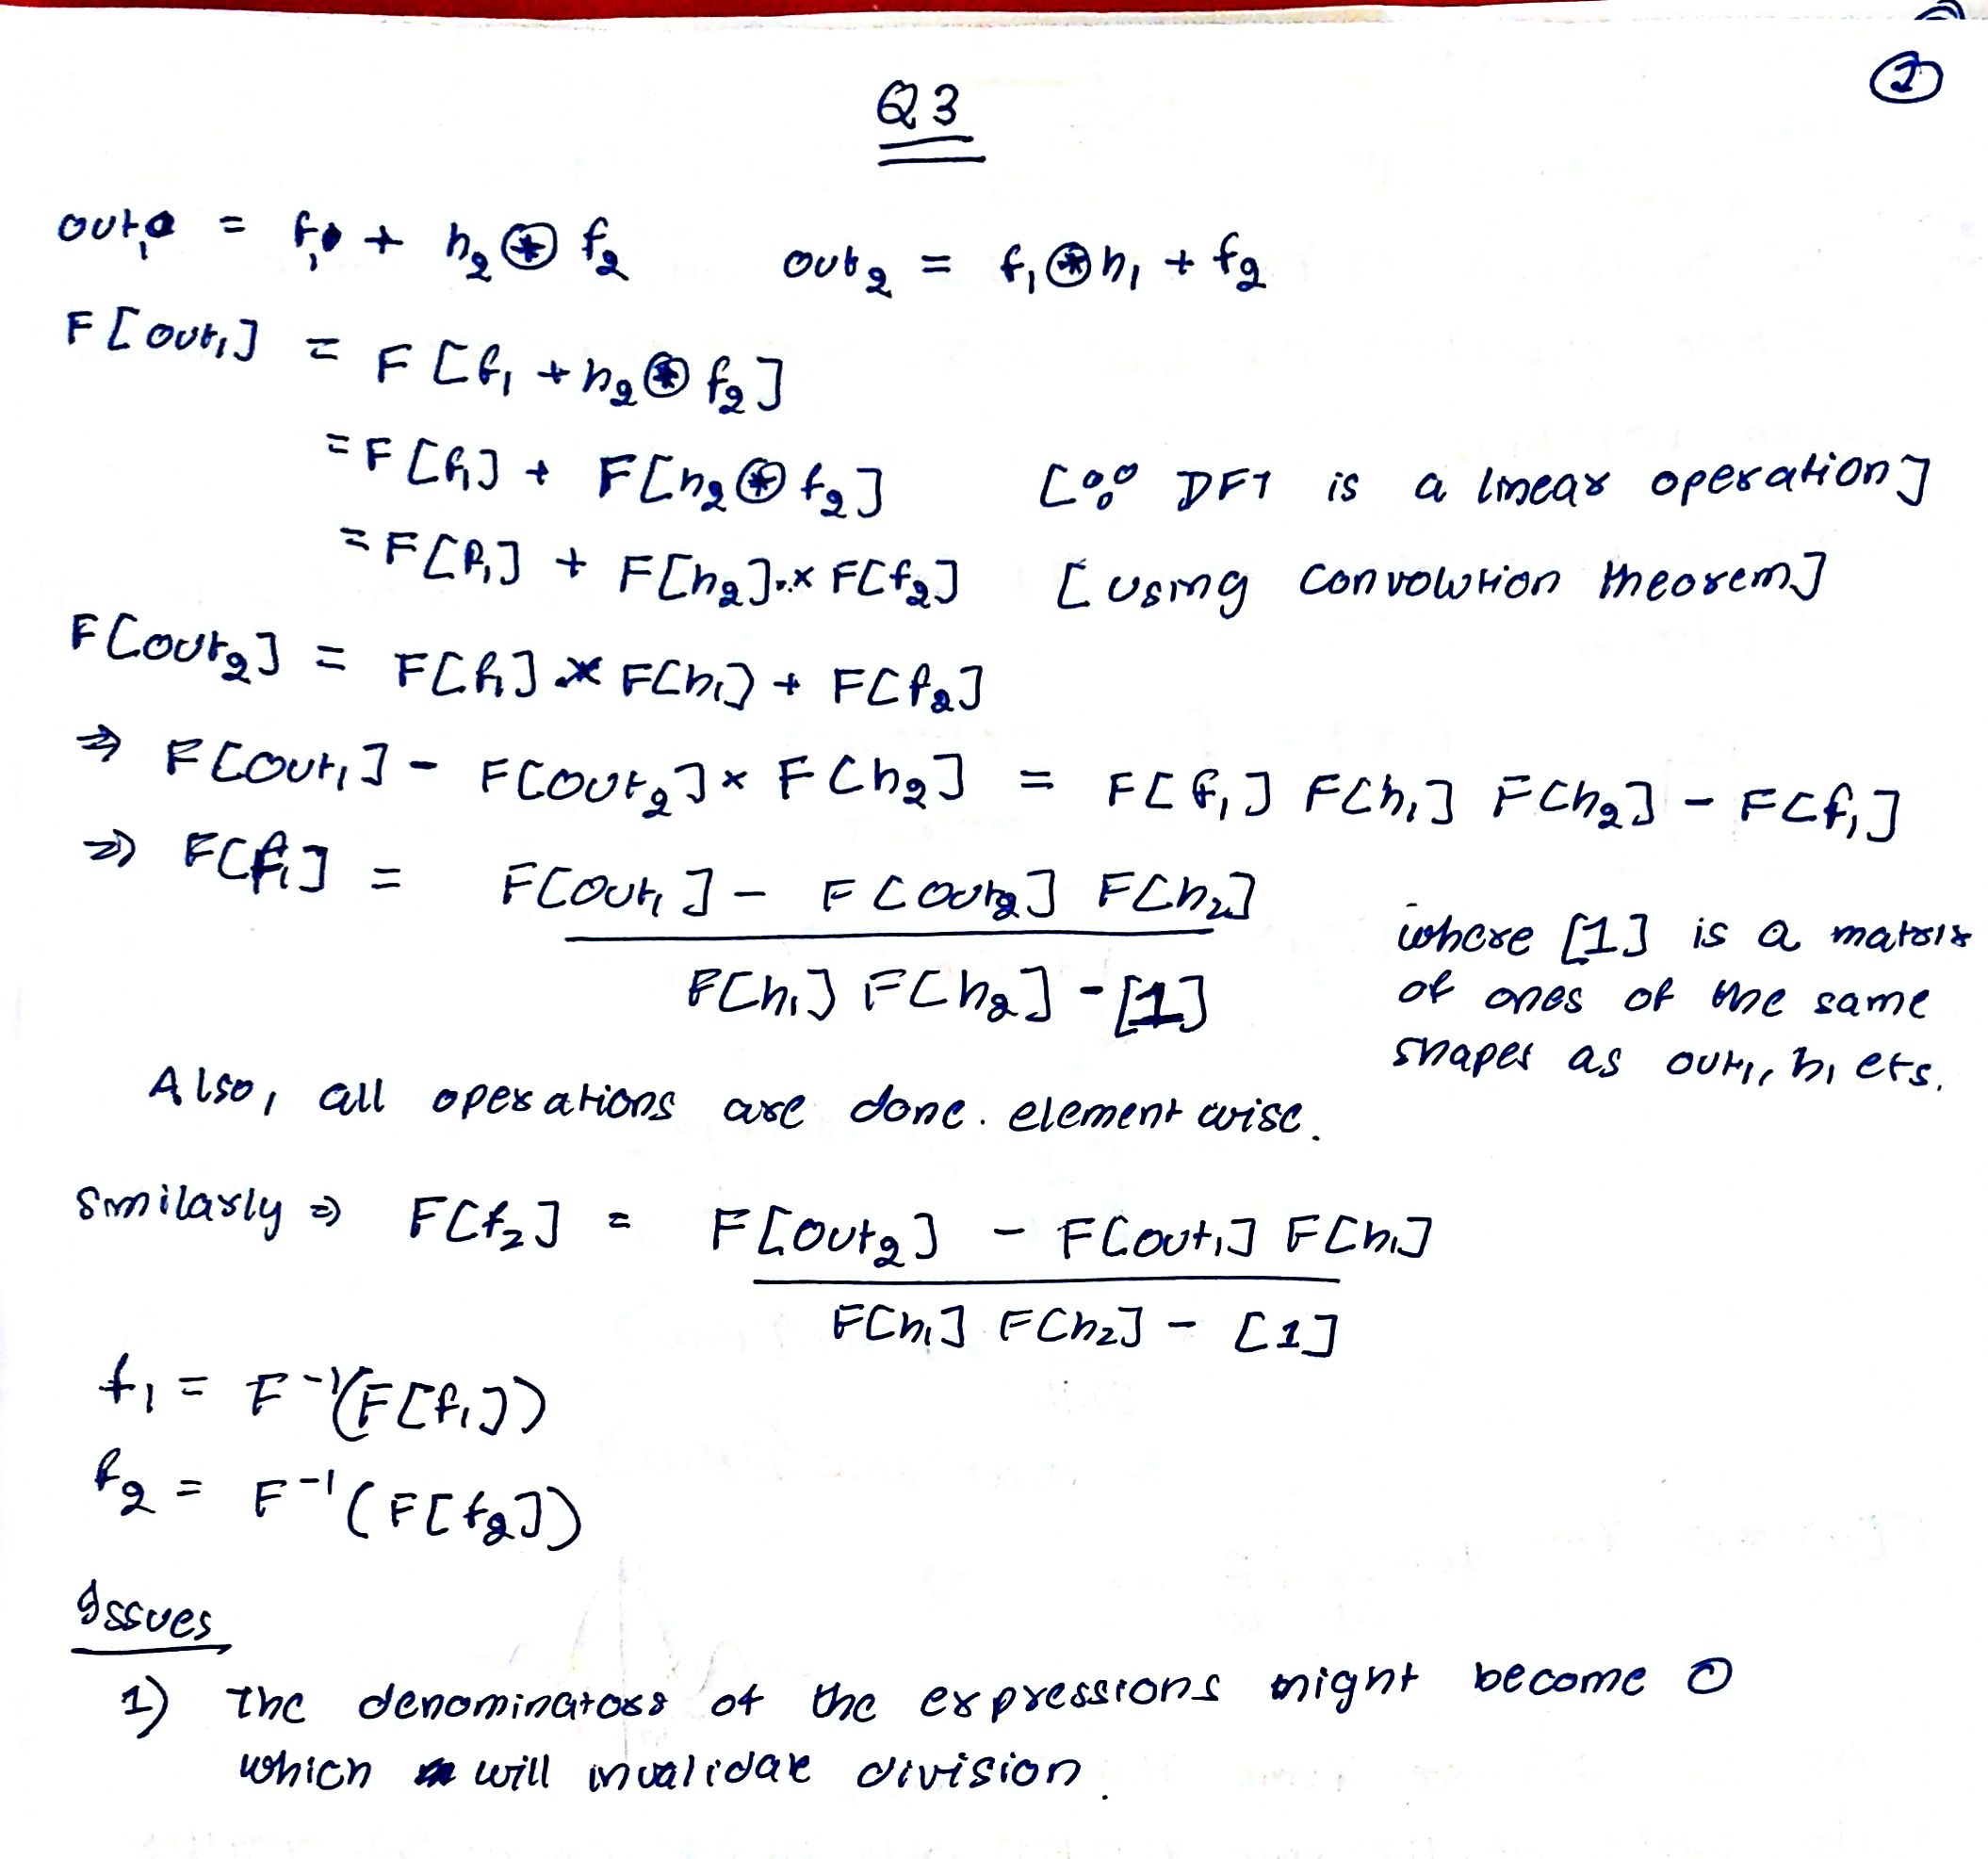 ①
Q3
out₁ = f₁ + h₂ ⊛ f₂    out₂ = f₁ ⊛ h₁ + f₂
F[out₁] = F[f₁ + h₂ ⊛ f₂]
= F[f₁] + F[h₂ ⊛ f₂]    [∵ DFT is a linear operation]
= F[f₁] + F[h₂].× F[f₂]    [using convolution theorem]
F[out₂] = F[f₁] .× F[h₁] + F[f₂]
⇒ F[out₁] - F[out₂] × F[h₂] = F[f₁] F[h₁] F[h₂] - F[f₁]
⇒ F[f₁] = F[out₁] - F[out₂] F[h₂]
F[h₁] F[h₂] - [1]
where [1] is a matrix
of ones of the same
shapes as out₁, h₁ ets.
Also, all operations are done. elementwise.
Similarly ⇒ F[f₂] = F[out₂] - F[out₁] F[h₁]
F[h₁] F[h₂] - [1]
f₁ = F⁻¹(F[f₁])
f₂ = F⁻¹(F[f₂])
Issues
1) The denominators of the expressions might become 0
which will invalidate division.